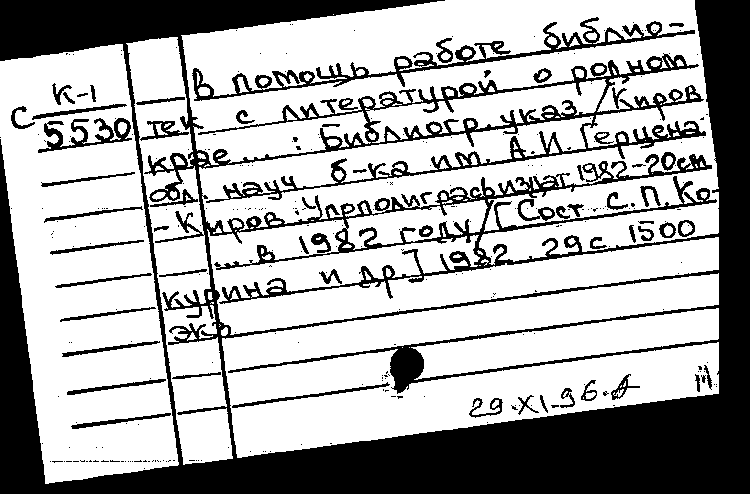 К-1
С 5530
В помощь работе библио-
тек с литературой о родном
крае ... : Библиогр. указ. / Киров
обл. науч б-ка им. А.И. Герцена
- Киров : Упрполиграфиздат, 1982 - 20см
... в 1982 году / [Сост С.П. Ко-
курина и др.] 1982 . 29с . 1500
экз
29.XI.96.